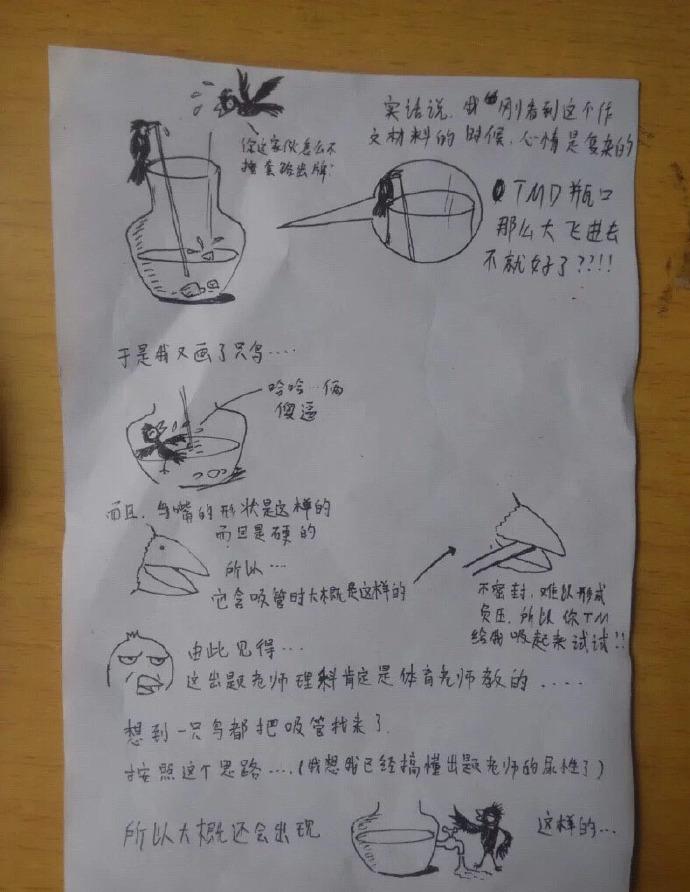 你这家伙怎么不
按套路出牌?
实话说,我刚看到这个作
文材料的时候,心情是复杂的
TMD瓶口
那么大飞进去
不就好了???!!!
于是我又画了只鸟....
哈哈...俩
傻逼
而且,鸟嘴的形状是这样的
而且是硬的
所以....
它含吸管时大概是这样的
不密封,难以形成
负压,所以你TM
给我吸起来试试!!
由此见得....
这出题老师理科肯定是体育老师教的.....
想到一只鸟都把吸管找来了
按照这个思路....(我想我已经搞懂出题老师的尿性了)
所以大概还会出现
这样的...